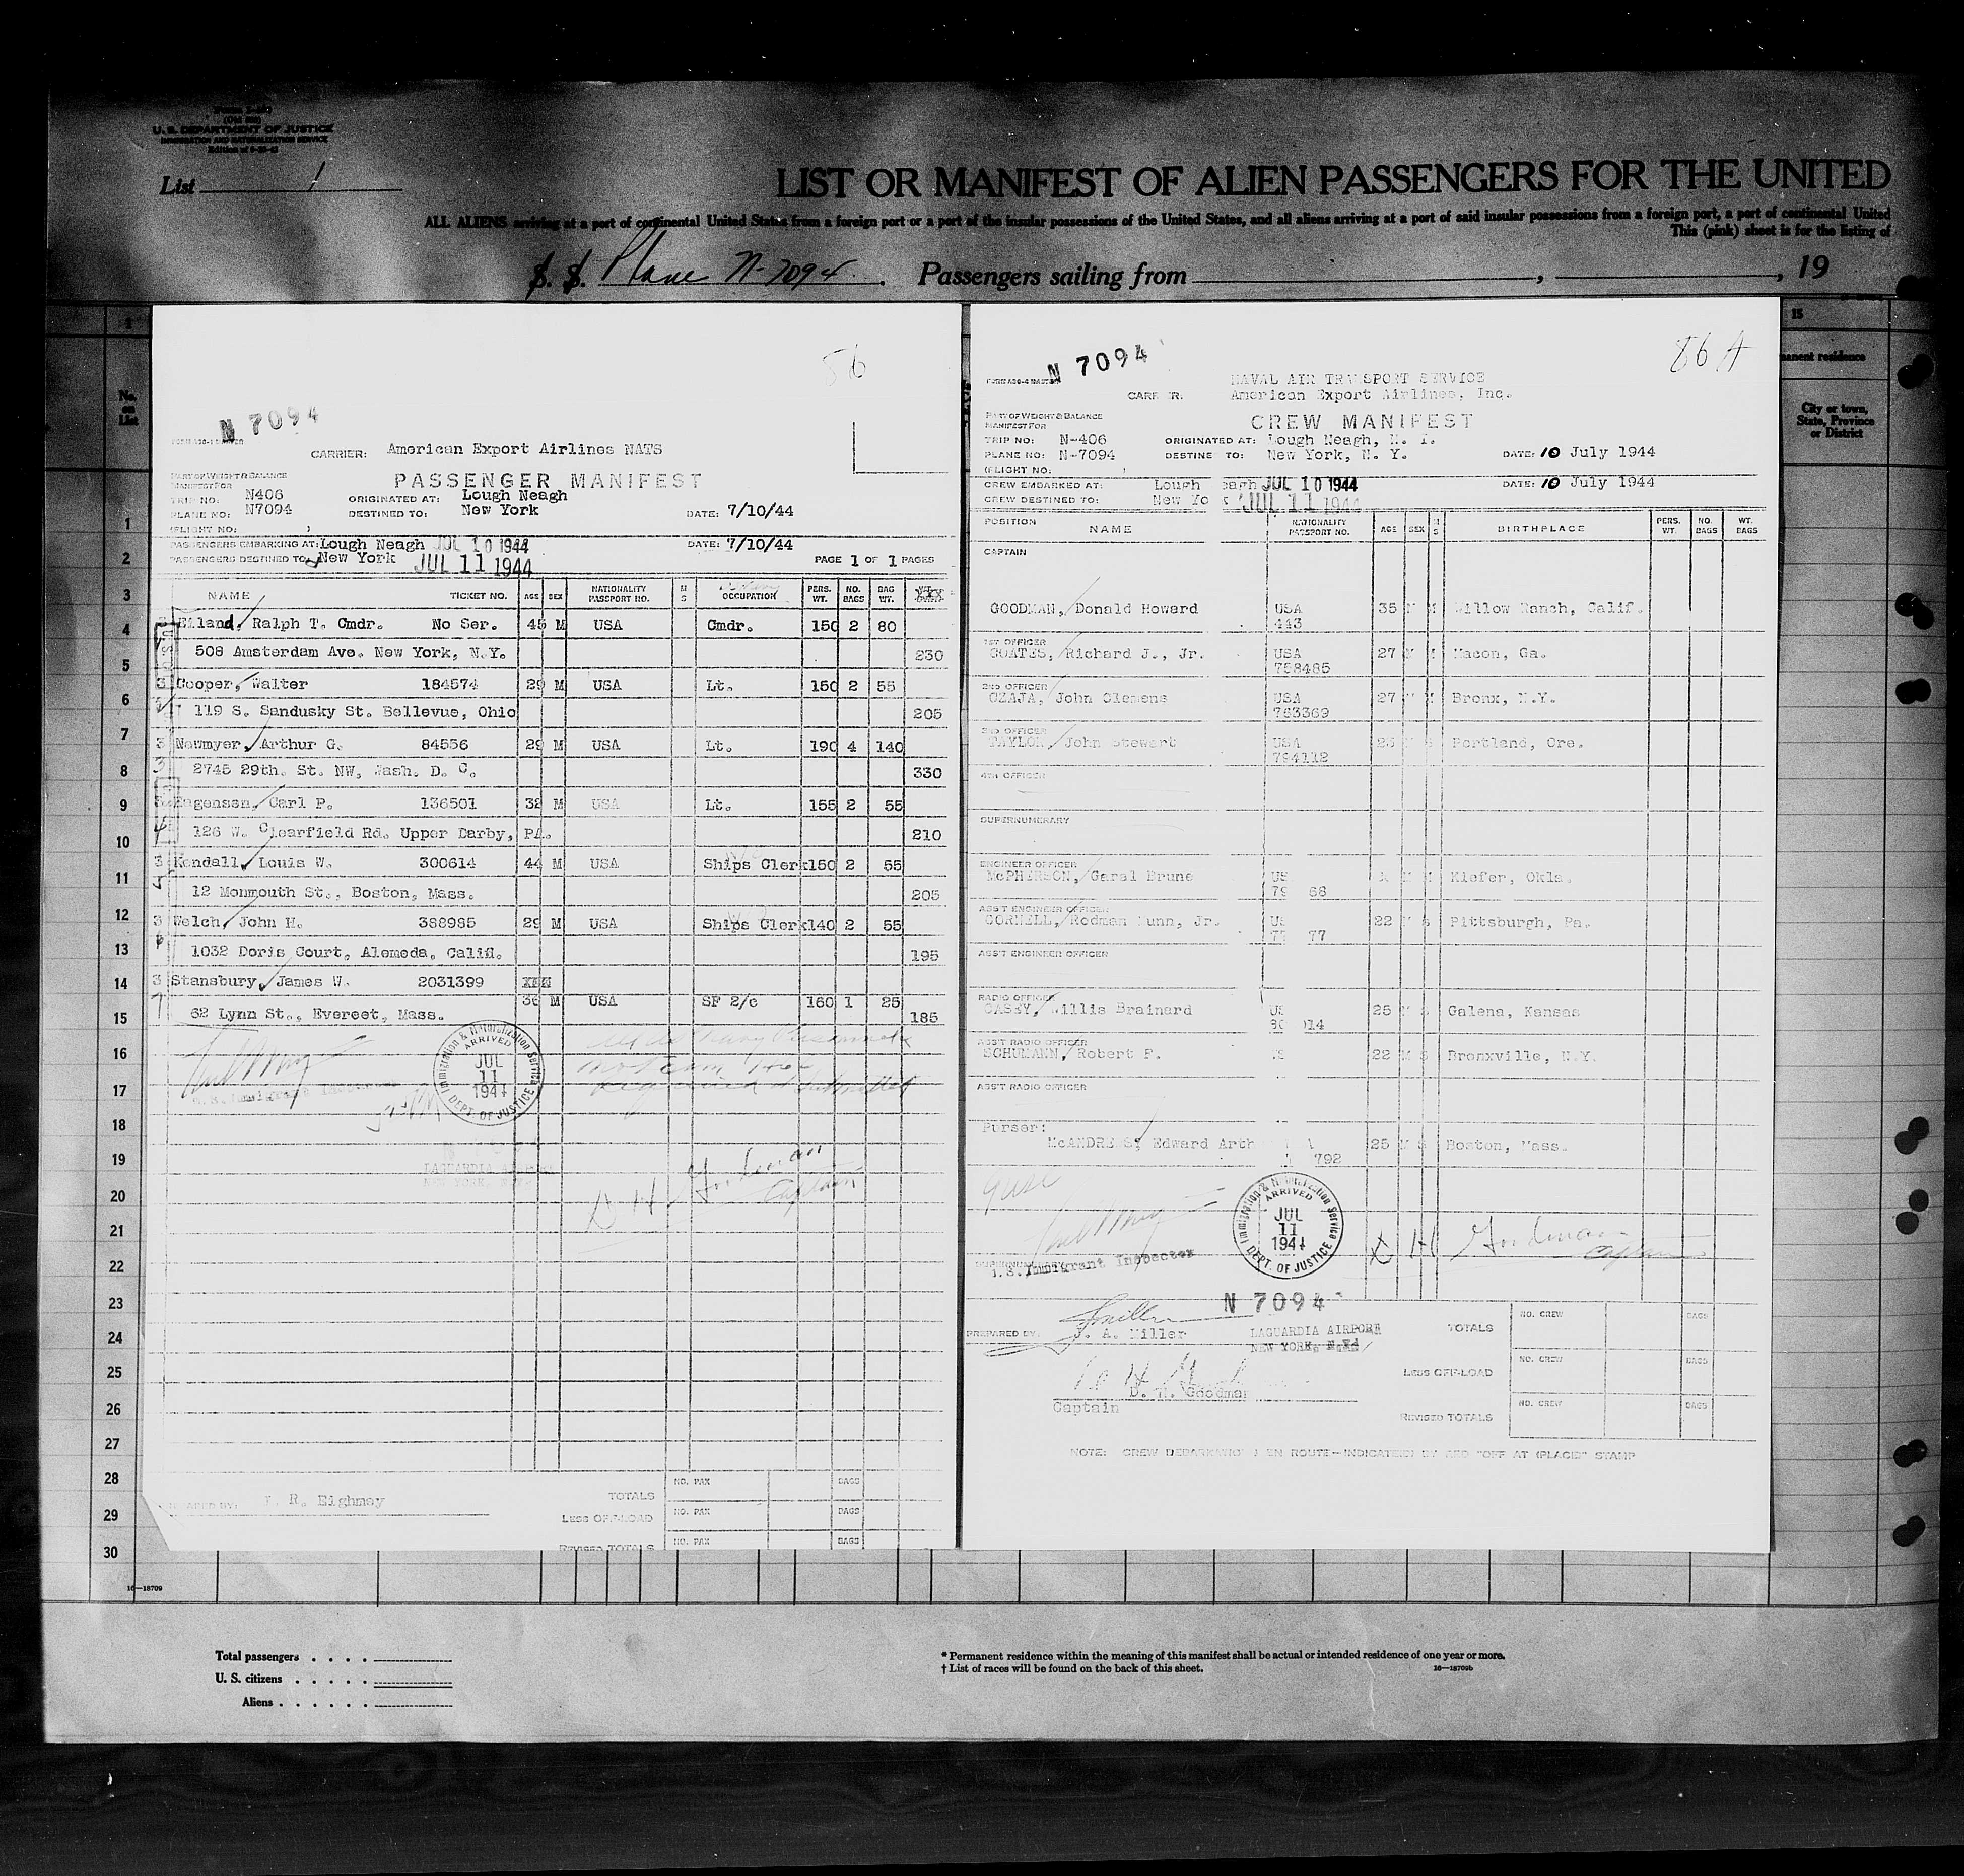 U. S. DEPARTMENT OF JUSTICE
IMMIGRATION AND NATURALIZATION SERVICE
List 1
LIST OR MANIFEST OF ALIEN PASSENGERS FOR THE UNITED
ALL ALIENS arriving at a port of continental United States from a foreign port or a port of the insular possessions of the United States, and all aliens arriving at a port of said insular possessions from a foreign port, a port of continental United
This (pink) sheet is for the listing of
S. S. Plane N-7094. Passengers sailing from , , 19
No. on List
1
2
3
4
5
6
7
8
9
10
11
12
13
14
15
16
17
18
19
20
21
22
23
24
25
26
27
28
29
30
56
N 7094
CARRIER: American Export Airlines NATS
PART OF WEIGHT & BALANCE
MANIFEST FOR
PASSENGER MANIFEST
TRIP NO: N406 ORIGINATED AT: Lough Neagh
PLANE NO: N7094 DESTINED TO: New York DATE: 7/10/44
(FLIGHT NO: )
PASSENGERS EMBARKING AT: Lough Neagh JUL 10 1944 DATE: 7/10/44
PASSENGERS DESTINED TO: New York JUL 11 1944 PAGE 1 OF 1 PAGES
NAME TICKET NO. AGE SEX NATIONALITY PASSPORT NO. M S OCCUPATION PERS. WT. NO. BAGS BAG WT.
Eiland, Ralph T. Cmdr. No Ser. 45 M USA Cmdr. 150 2 80
508 Amsterdam Ave. New York, N.Y. 230
Cooper, Walter 184574 29 M USA Lt. 150 2 55
119 S. Sandusky St. Bellevue, Ohio 205
Newmyer, Arthur G. 84556 29 M USA Lt. 190 4 140
2745 29th. St. NW, Wash. D. C. 330
Carl P. 136501 32 M USA Lt. 155 2 55
126 W. Clearfield Rd. Upper Darby, PA. 210
Kendall, Louis W. 300614 44 M USA Ships Clerk 150 2 55
12 Monmouth St., Boston, Mass. 205
Welch, John H. 388985 29 M USA Ships Clerk 140 2 55
1032 Doris Court, Alameda, Calif. 195
Stansbury, James W. 2031399
36 M USA SF 2/c 160 1 25
62 Lynn St., Evereet, Mass. 185
Immigration & Naturalization Service
ARRIVED
JUL
11
1944
DEPT. OF JUSTICE
D H Goodman
Captain
PREPARED BY: R. Eighmey
TOTALS NO. PAX BAGS
LESS OFF-LOAD NO. PAX BAGS
REVISED TOTALS NO. PAX BAGS
86 A
N 7094
NAVAL AIR TRANSPORT SERVICE
American Export Airlines, Inc.
PART OF WEIGHT & BALANCE
MANIFEST FOR
CREW MANIFEST
TRIP NO: N-406 ORIGINATED AT: Lough Neagh, N. I.
PLANE NO: N-7094 DESTINE TO: New York, N. Y. DATE: 10 July 1944
(FLIGHT NO: )
CREW EMBARKED AT: Lough eagh JUL 10 1944 DATE: 10 July 1944
CREW DESTINED TO: New Yo JUL 11 1944
POSITION NAME NATIONALITY PASSPORT NO. AGE SEX M S BIRTHPLACE PERS. WT. NO. BAGS WT. BAGS
CAPTAIN
GOODMAN, Donald Howard USA 35 M M Willow Ranch, Calif.
443
1ST OFFICER
COATES, Richard J., Jr. USA 27 M M Macon, Ga.
758485
2ND OFFICER
CZAJA, John Clemens USA 27 M M Bronx, N.Y.
783369
3RD OFFICER
TAYLOR, John Stewart USA Portland, Ore.
794112
4TH OFFICER
SUPERNUMERARY
ENGINEER OFFICER
McPHERSON, Garal Brune US Kiefer, Okla.
79 68
ASS'T ENGINEER OFFICER
CORNELL, Rodman Nunn, Jr. US 22 M S Pittsburgh, Pa.
77
ASS'T ENGINEER OFFICER
RADIO OFFICER
CASEY, Willis Brainard US 25 M Galena, Kansas
014
ASS'T RADIO OFFICER
SCHUMANN, Robert F. 22 M S Bronxville, N.Y.
ASS'T RADIO OFFICER
Purser:
McANDREWS, Edward Arth 25 M S Boston, Mass.
792
Immigration & Naturalization Service
ARRIVED
JUL
11
1944
DEPT. OF JUSTICE
D H Goodman
Captain
U.S. Immigrant Inspector
N 7094
PREPARED BY: J. A. Miller
LAGUARDIA AIRPORT
NEW YORK, N.Y.
D. H. Goodman
Captain
TOTALS NO. CREW BAGS
LESS OFF-LOAD NO. CREW BAGS
REVISED TOTALS NO. CREW BAGS
15
manent residence
City or town, State, Province or District
16—18709
Total passengers
U. S. citizens
Aliens
* Permanent residence within the meaning of this manifest shall be actual or intended residence of one year or more.
† List of races will be found on the back of this sheet.
16—18709b